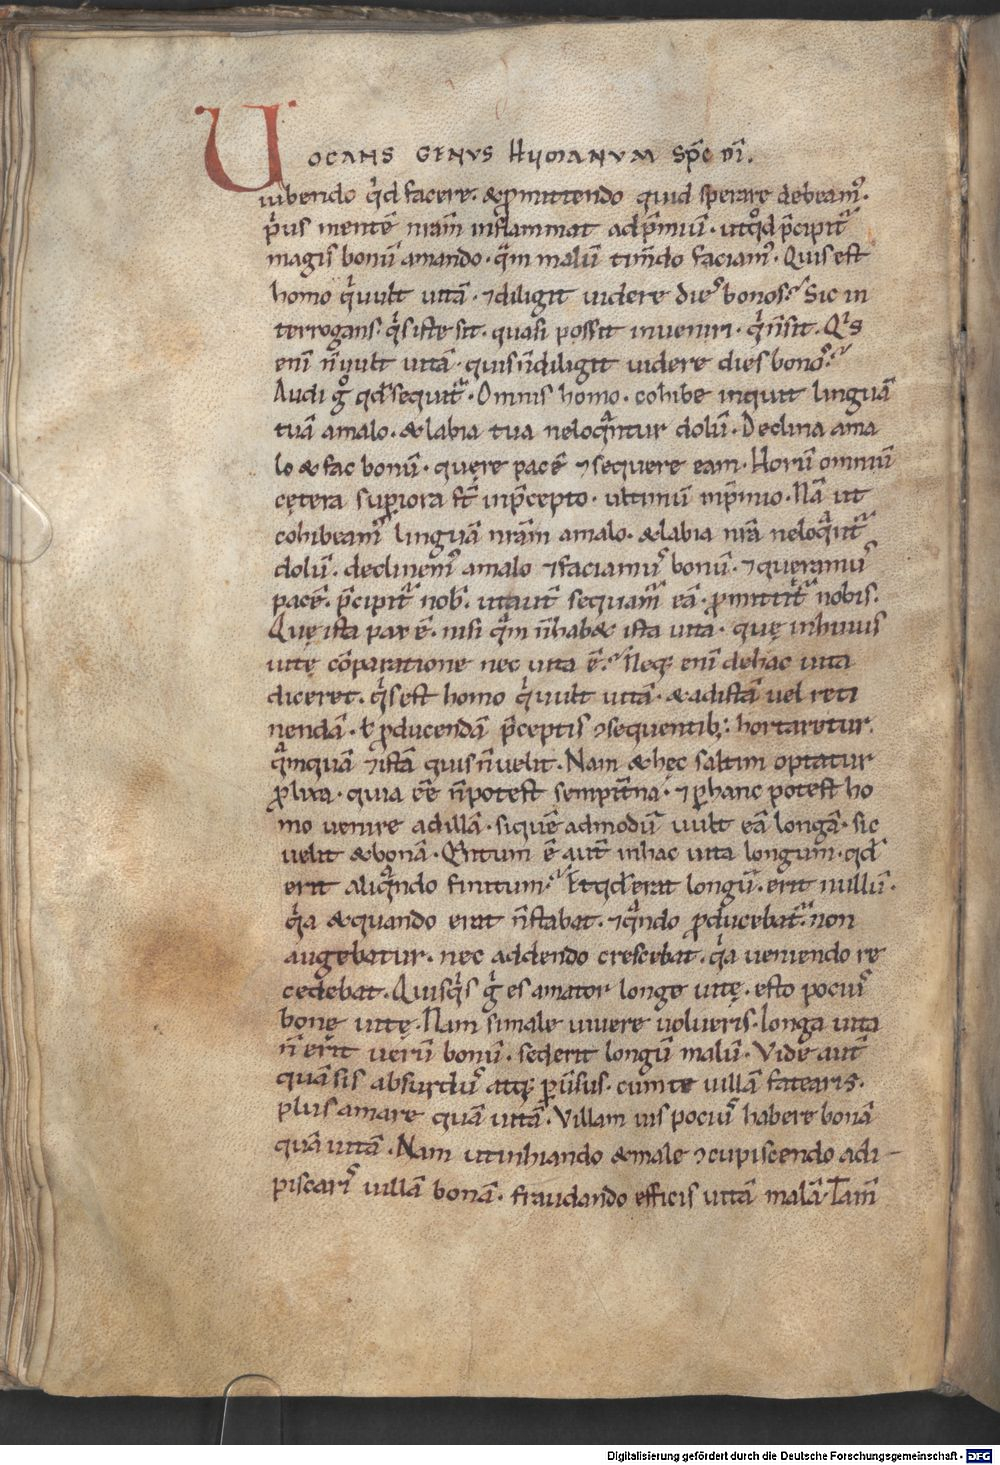 UOCANS GENUS HUMANUM SPC DI.
iubendo qd facere. & promittendo quid sperare debeam'.
p'us mentē nrām inflammat adpmiū. ut qd pcipit̃
magis bonū amando. qm malū timdo faciam'. Quis est
homo q'uult uitā. ⁊diligit uidere dies bonos? Sic in
terrogans. q's iste sit. quasi possit inueniri. q'ñsit. Q's
enī ñuult uitā. quisñdiligit uidere dies bonos?
Audi g° qd sequit̃. Omnis homo. cohibe inquit linguā
tuā amalo. & labia tua neloqntur dolū. Declina ama
lo & fac bonū. quęre pacē ⁊sequere eam. Horū omniū
cętera superiora st̄ inpcepto. ultimū inpmio. Nā ut
cohibeam' linguā nrām amalo. & labia nrā neloqnt̃
dolū. declinem' amalo ⁊faciamus bonū. ⁊queramus
pacē. pcipit̃ nob. utaut̄ sequam̃ eā. promittit̃ nobis.
Quę ista pax ē. nisi qm ñhab& ista uita. quę inhuius
uitę cōparatione nec uita ē? Neq; enī dehac uita
diceret. q's est homo q'uult uitā. & adistā uel reti
nendā. ł pducendā pceptis ⁊sequentib; hortaretur.
qmquā ⁊istā quis ñuelit. Nam & hęc saltim optatur
plixa. quia eē ñpotest sempit̄na. ⁊phanc potest ho
mo uenire adillā. siquē admodū uult eā longā. sic
uelit & bonā. Quitum ē aut̄ inhac uita longum. qd
erit aliqndo finitum? Et qd erat longū. erit nullū.
q'a & quando erat ñstabat. ⁊qndo pducebat̃. non
augebatur. nec addendo crescebat. q'a ueniendo re
cedebat. Quisq's g' es amator longę uitę. esto pocius
bonę uitę. Nam simale uiuere uolueris. longa uita
ñ erit uerū bonū. sederit longū malū. Vide aut̄
quāsis absurdus atq; puersus. cumte uillā fatearis.
plus amare quā uitā. Villam uis pocius habere bonā
quā uitā. Nam utinhiando & male ⁊cupiscendo adi-
piscaris uillā bonā. fraudando efficis uitā malā. Tam̄
Digitalisierung gefördert durch die Deutsche Forschungsgemeinschaft - DFG